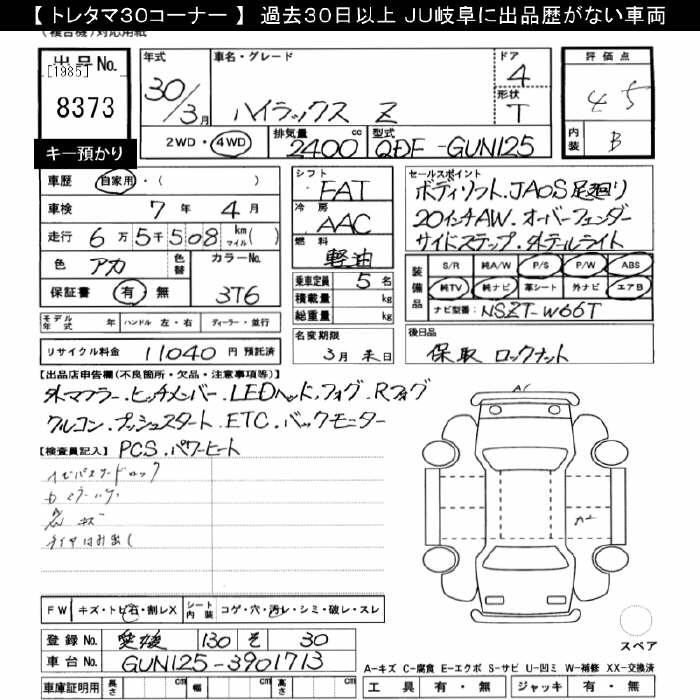 【 トレタマ30コーナー 】 過去30日以上 JU岐阜に出品歴がない車両
出品No.
[1985]
8373
キー預かり
年式
30/3月
車名・グレード
ハイラックス Z
ドア
4
形状
T
評価点
4 5
内装
B
2WD・4WD
排気量
2400 cc
型式
QDF -GUN125
車歴 自家用・( )
車検 7年 4月
走行 6万5千508 km マイル( )
色 アカ 色替
カラーNo. 3T6
保証書 有・無
シフト
FAT
冷房
AAC
燃料
軽油
乗車定員 5名
積載量 kg
総重量 kg
セールスポイント
ボディリフト.JAOS足廻り
20インチAW.オーバーフェンダー
サイドステップ.外テールライト
装備品
S/R 純A/W P/S P/W ABS
純TV 純ナビ 革シート 外ナビ エアB
ナビ型番: NSZT-W66T
モデル年式 年 ハンドル 左・右 ディーラー・並行
リサイクル料金 11040 円 預託済
名変期限
3月末日
後日品
保取 ロックナット
【出品店申告欄(不良箇所・欠品・注意事項等)】
外マフラー.ヒッチメンバー.LEDヘッド、フォグ.Rフォグ
クルコン.プッシュスタート.ETC.バックモニター
【検査員記入】 PCS.パワーヒート
タイヤはお出し
A2
FW キズ・トビ石・割レX
シート内装 コゲ・穴・汚レ・シミ・破レ・スレ
登録No. 愛媛 130 そ 30
車台No. GUN125-3901713
車庫証明用 長さ cm 幅 cm 高さ cm
スペア
A-キズ C-腐食 E-エクボ S-サビ U-凹ミ W-補修 XX-交換済
工具 有・無 ジャッキ 有・無